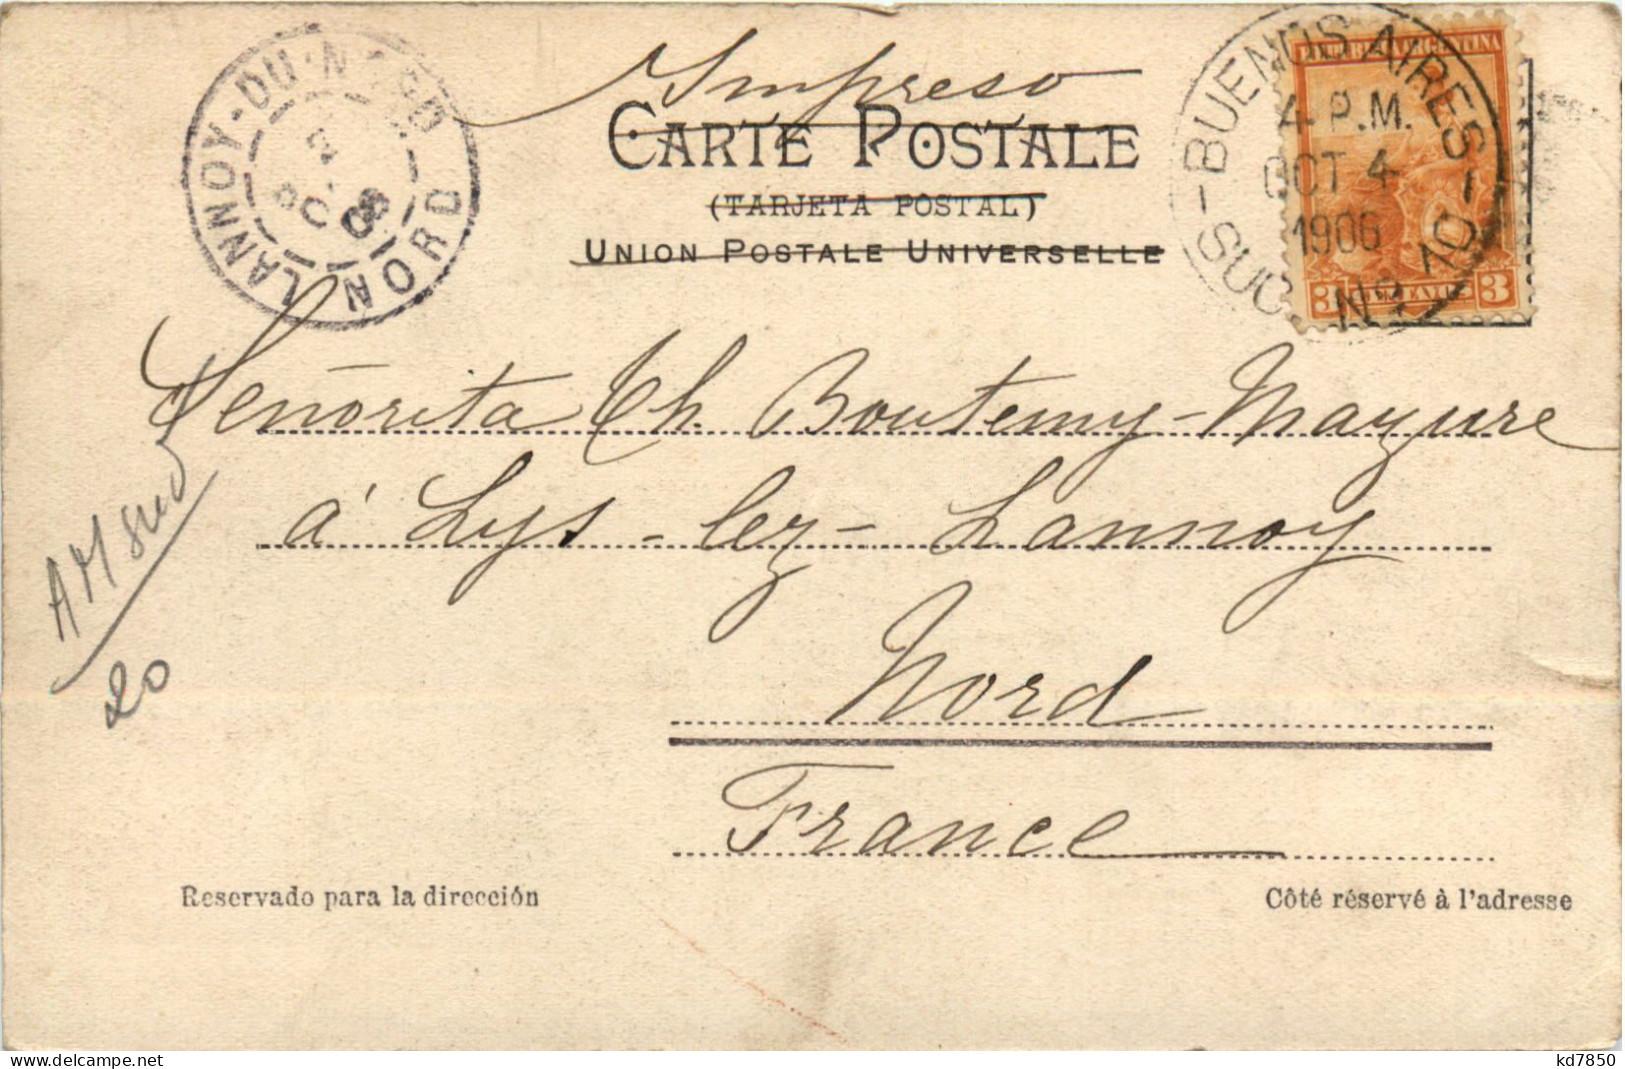 Impreso
CARTE POSTALE
(TARJETA POSTAL)
UNION POSTALE UNIVERSELLE
LANNOY-DU-NORD
NORD
BUENOS AIRES
4 P.M.
OCT 4
1906
SUC. Nº 10
REPUBLICA ARGENTINA
3 CENTAVOS 3
Señorita Th. Boutemy-Mazure
à Lys-lez-Lannoy
Nord
France
AM Sud
20
Reservado para la dirección
Côté réservé à l'adresse
www.delcampe.net
kd7850